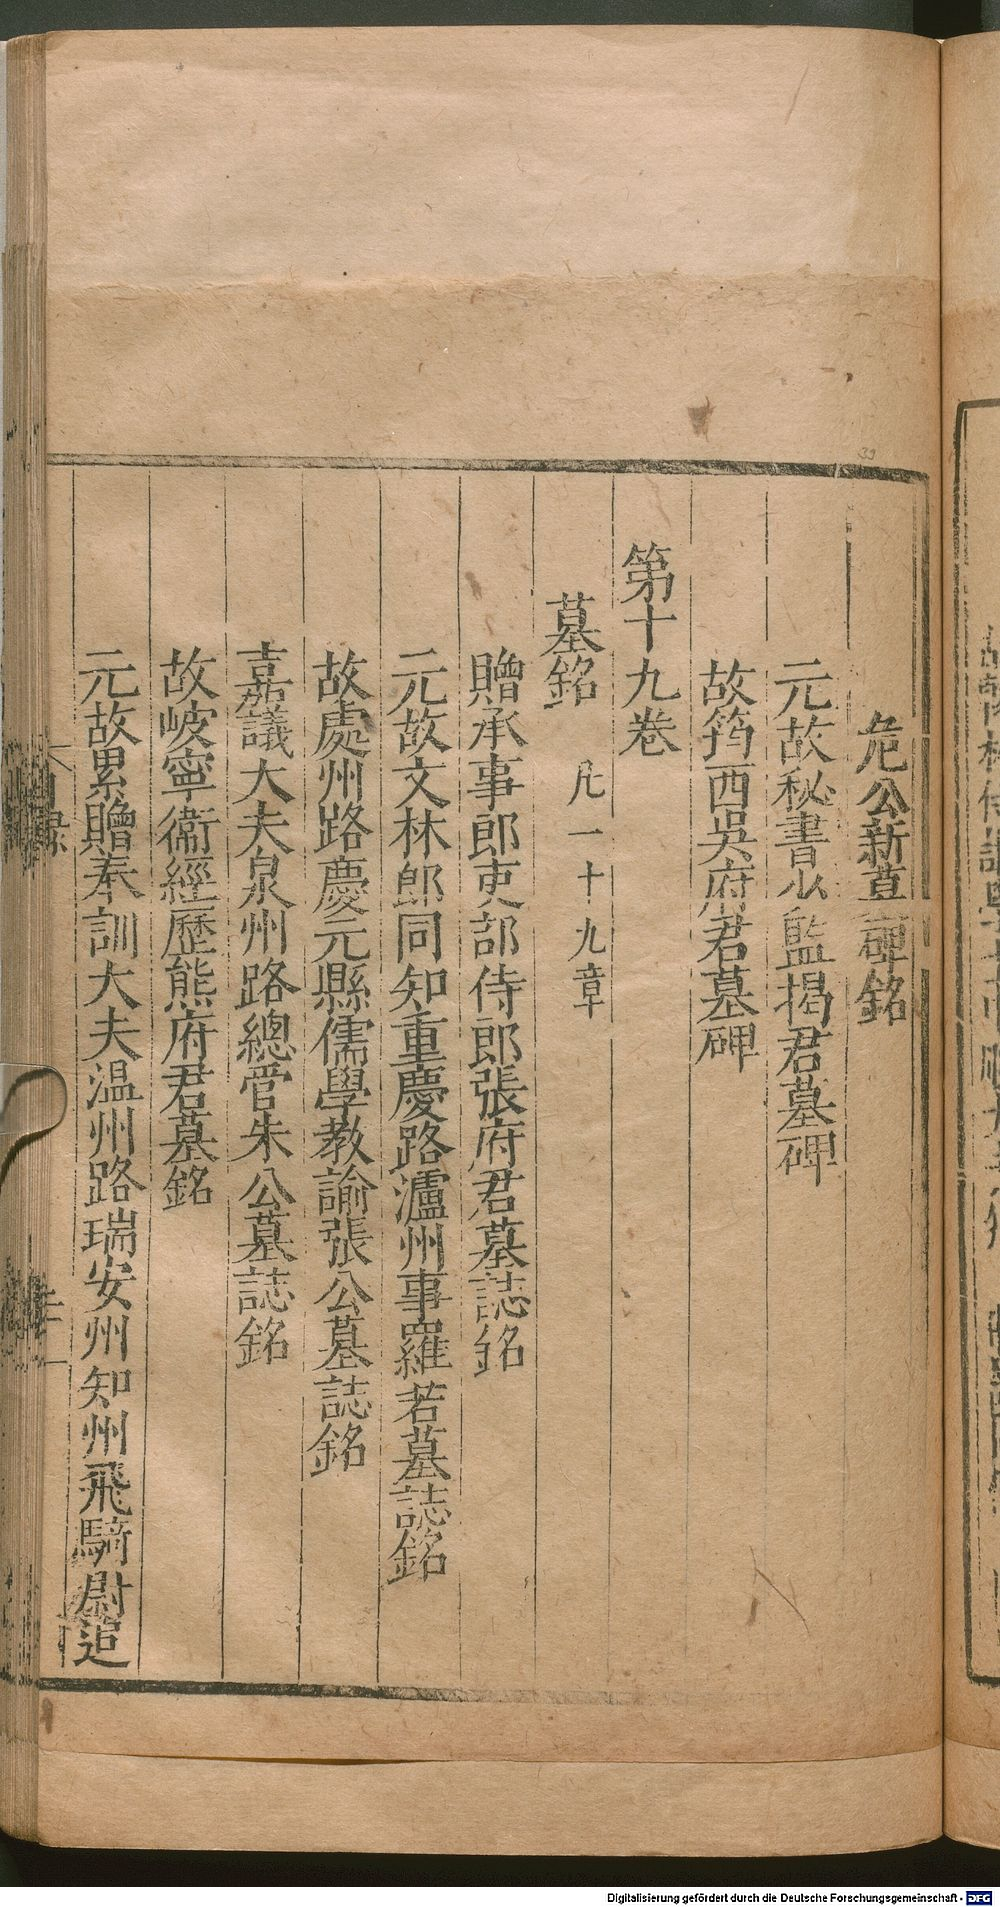 危公新墓碑銘
元故秘書少監揭君墓碑
故筠西吳府君墓碑
第十九卷
墓銘 凡一十九章
贈承事郎吏部侍郎張府君墓誌銘
元故文林郎同知重慶路瀘州事羅君墓誌銘
故處州路慶元縣儒學教諭張公墓誌銘
嘉議大夫泉州路總管朱公墓誌銘
故岐寧衞經歷熊府君墓銘
元故累贈奉訓大夫温州路瑞安州知州飛騎尉追
目錄
Digitalisierung gefördert durch die Deutsche Forschungsgemeinschaft - DFG